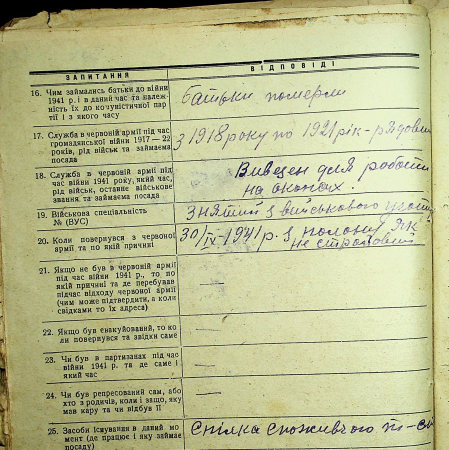 ЗАПИТАННЯ
ВІДПОВІДІ
16. Чим займались батьки до війни
1941 р. і в даний час та належ-
ність їх до комуністичної пар-
тії і з якого часу
батьки померли
17. Служба в червоній армії під час
громадянської війни 1917—22
років, рід військ та займаема
посада
з 1918 року по 1921 рік - рядовий
18. Служба в червоній армії під
час війни 1941 року, який час,
рід військ, останнє військове
звання та займаема посада
Вивезен для роботи
на окопах.
19. Військова спеціальність
№ (ВУС)
знятий з військового
20. Коли повернувся з червоної
армії та по якій причині
30/IV-1941 р. з як
не строєвий
21. Якщо не був в червоній армії
під час війни 1941 р., то по
якій причині та де перебував
підчас відходу червоної армії
(чим може підтвердити, а коли
свідками то їх адреса)
—
22. Якщо був евакуйований, то ко-
ли повернувся та звідки саме
—
23. Чи був в партизанах під час
війни 1941 р. та де саме і
який час
—
24. Чи був репресований сам, або
хто з родичів, коли і защо, яку
мав кару та чи відбув її
—
25. Засоби існування в даний мо-
мент (де працює і яку займає
посаду)
Спілка споживчого